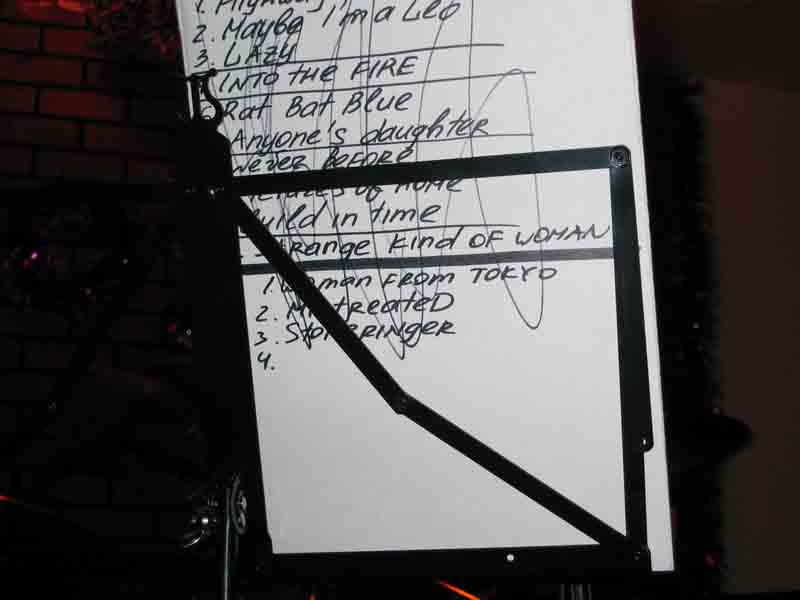 1. Highway
2. Maybe I'm a Leo
3. LAZY
INTO the FIRE
Rat Bat Blue
Anyone's daughter
Never BEFORE
Pictures of HOME
build in time
Strange Kind OF WOMAN
1. Woman From TOKYO
2. MistreateD
3. StoRMBRINGER
4.